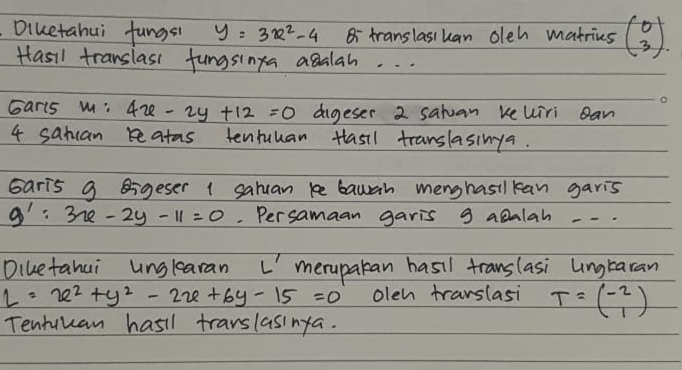 . Diketahui fungsi y = 3x² - 4 ditranslasikan oleh matriks (0 3).
Hasil translasi fungsinya adalah ...
Garis m : 4x - 2y + 12 = 0 digeser 2 satuan ke kiri dan
4 satuan ke atas tentukan Hasil translasinya.
Garis g digeser 1 satuan ke bawah menghasilkan garis
g' : 3x - 2y - 11 = 0. Persamaan garis g adalah ---
Diketahui lingkaran L' merupakan hasil translasi lingkaran
L = x² + y² - 2x + 6y - 15 = 0 oleh translasi T = (-2 1)
Tentukan hasil translasinya.